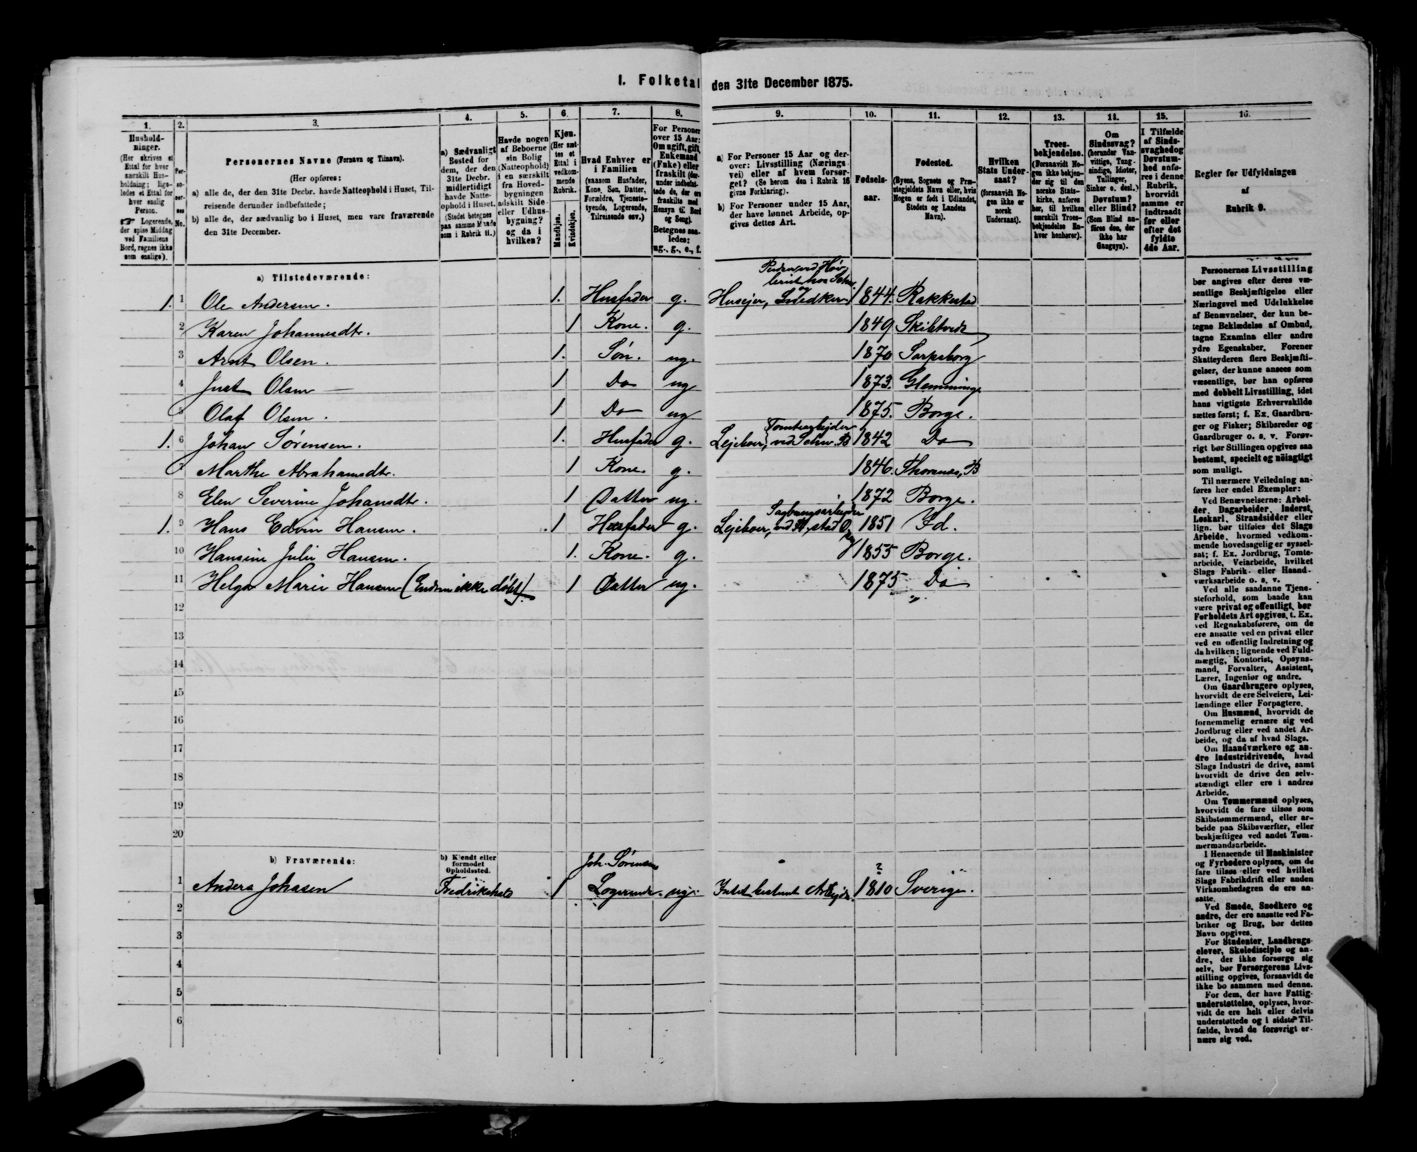 I. Folketal den 31te December 1875.
1. 2. 3. 4. 5. 6. 7. 8. 9. 10. 11. 12. 13. 14. 15. 16.
Husholdninger.
(Her skrives et Ettal for hver særskilt Husholdning; ligeledes et Ettal for hver enslig Person.
Logerende, der spise Middag ved Familiens Bord, regnes ikke som enslige).
Personernes No.
Personernes Navne (Fornavn og Tilnavn).
(Her opføres:
a) alle de, der den 31te Decbr. havde Natteophold i Huset, Tilreisende derunder indbefattede;
b) alle de, der sædvanlig bo i Huset, men vare fraværende den 31te December.
a) Sædvanligt Bosted for dem, der den 31te Decbr. midlertidigt havde Natteophold i Huset.
(Stedet betegnes paa samme Maade som i Rubrik 11.)
Havde nogen af Beboerne sin Bolig (Natteophold) i en særskilt fra Hovedbygningen adskilt Side- eller Udhusbygning? og da i hvilken?
Kjøn.
(Her sættes et Ettal i vedkommende Rubrik.
Mandkjøn.
Kvindekjøn.
Hvad Enhver er i Familien
(saasom Husfader, Kone, Søn, Datter, Forældre, Tjenestetyende, Logerende, Tilreisende osv.)
For Personer over 15 Aar: Om ugift, gift, Enkemand (Enke) eller fraskilt
Betegnes saaledes: ug., g., e., f.
a) For Personer 15 Aar og derover: Livsstilling (Næringsvei) eller af hvem forsørget? (Se herom den i Rubrik 16 givne Forklaring).
b) For Personer under 15 Aar, der have lønnet Arbeide, opgives dettes Art.
Fødselsaar.
Fødested.
(Byens, Sognets og Præstegjeldets Navn eller, hvis Nogen er født i Udlandet, Stedets og Landets Navn).
Hvilken Stats Undersaat?
(forsaavidt Nogen ikke er norsk Undersaat).
Troesbekjendelse.
(Forsaavidt Nogen ikke bekjender sig til den norske Statskirke, anføres her, til hvilken særskilt Troesbekjendelse Enhver henhører).
Om Sindssvag?
(herunder Vanvittige, Tungsindige, Idioter, Tullinger, Sinker o. desl.)
Døvstum?
eller Blind?
(Som Blind anføres den, der ikke har Gangsyn).
I Tilfælde af Sindssvaghed og Døvstumhed anføres i denne Rubrik, hvorvidt samme er indtraadt før eller efter det fyldte 4de Aar.
Regler for Udfyldningen
af
Rubrik 9.
a) Tilstedeværende:
1. 1 Ole Andersen. 1. Husfader g. Huseier, Snedker 1844. Rakkestad
2 Karen Johannesdtr. 1 Kone. g. 1849. Skibtvedt
3 Arnt Olsen. 1. Søn. ug. 1870 Sarpsborg
4 Just Olsen 1 Do ug 1873. Glemminge
5 Olaf Olsen. 1 Do ug 1875. Borge.
Tomtearbejder
1. 6 Johan Sørensen. 1. Husfader g. Lejeboer, ved 1842 Do
7 Marthe Abrahamsdtr. 1 Kone. g. 1846. Thorsnæs, B
8 Elen Severine Johansdtr. 1 Datter ug. 1872 Borge.
Sagbrugsarbejder
1. 9 Hans Edvin Hansen. 1 Husfader g. Lejeboer, 1851 Id.
10 Hansine Julie Hansen. 1. Kone. g. 1855 Borge.
11 Helga Marie Hansen (Endnu ikke døbt) 1 Datter ug. 1875 Do
12
13
14
15
16
17
18
19
20
b) Fraværende:
b) Kjendt eller formodet Opholdssted.
Joh. Sørensen
?
1 Anders Johasen Fredrikshald 1 Logerende. ug. Intet bestemt Arbejde 1810 Sverige.
2
3
4
5
6
Personernes Livsstilling bør angives efter deres væsentlige Beskjæftigelse eller Næringsvei med Udelukkelse af Benævnelser, der kun betegne Beklædelse af Ombud, tagne Examina eller andre ydre Egenskaber. Forener Skatteyderen flere Beskjæftigelser, der kunne ansees som væsentlige, bør han opføres med dobbelt Livsstilling, idet hans vigtigste Erhvervskilde sættes først; f. Ex. Gaardbruger og Fisker; Skibsreder og Gaardbruger o. s. v. Forøvrigt bør Stillingen opgives saa bestemt, specielt og nøiagtigt som muligt.
Til nærmere Veiledning anføres her endel Exempler:
Ved Benævnelserne: Arbeider, Dagarbeider, Inderst, Løskarl, Strandsidder eller lign. bør tilføies det Slags Arbeide, hvormed vedkommende hovedsagelig er sysselsat; f. Ex. Jordbrug, Tomtearbeide, Veiarbeide, hvilket Slags Fabrik- eller Haandværksarbeide o. s. v.
Ved alle saadanne Tjenesteforhold, som baade kan være privat og offentligt, bør Forholdets Art opgives, f. Ex. ved Regnskabsførere, om de ere ansatte ved en privat eller ved en offentlig Indretning og da hvilken; lignende ved Fuldmægtig, Kontorist, Opsynsmand, Forvalter, Assistent, Lærer, Ingeniør og andre.
Om Gaardbrugere oplyses, hvorvidt de ere Selveiere, Leilændinge eller Forpagtere.
Om Husmænd, hvorvidt de fornemmelig ernære sig ved Jordbrug eller ved andet Arbeide, og da af hvad Slags.
Om Haandværkere og andre Industridrivende, hvad Slags Industri de drive, samt hvorvidt de drive den selvstændigt eller ere i andres Arbeide.
Om Tømmermænd oplyses, hvorvidt de fare tilsøs som Skibstømmermænd, eller arbeide paa Skibsværfter, eller beskjæftiges ved andet Tømmermandsarbeide.
I Henseende til Maskinister og Fyrbødere oplyses, om de fare tilsøs eller ved hvilket Slags Fabrikdrift eller anden Virksomhedsgren de ere ansatte.
Ved Smede, Snedkere og andre, der ere ansatte ved Fabriker og Brug, bør dettes Navn opgives.
For Studenter, Landbrugselever, Skoledisciple og andre, der ikke forsørge sig selv, bør Forsørgerens Livsstilling opgives, forsaavidt de ikke bo sammen med denne.
For dem, der have Fattigunderstøttelse, oplyses, hvorvidt de ere helt eller delvis understøttede og i sidste Tilfælde, hvad de forøvrigt ernære sig ved.